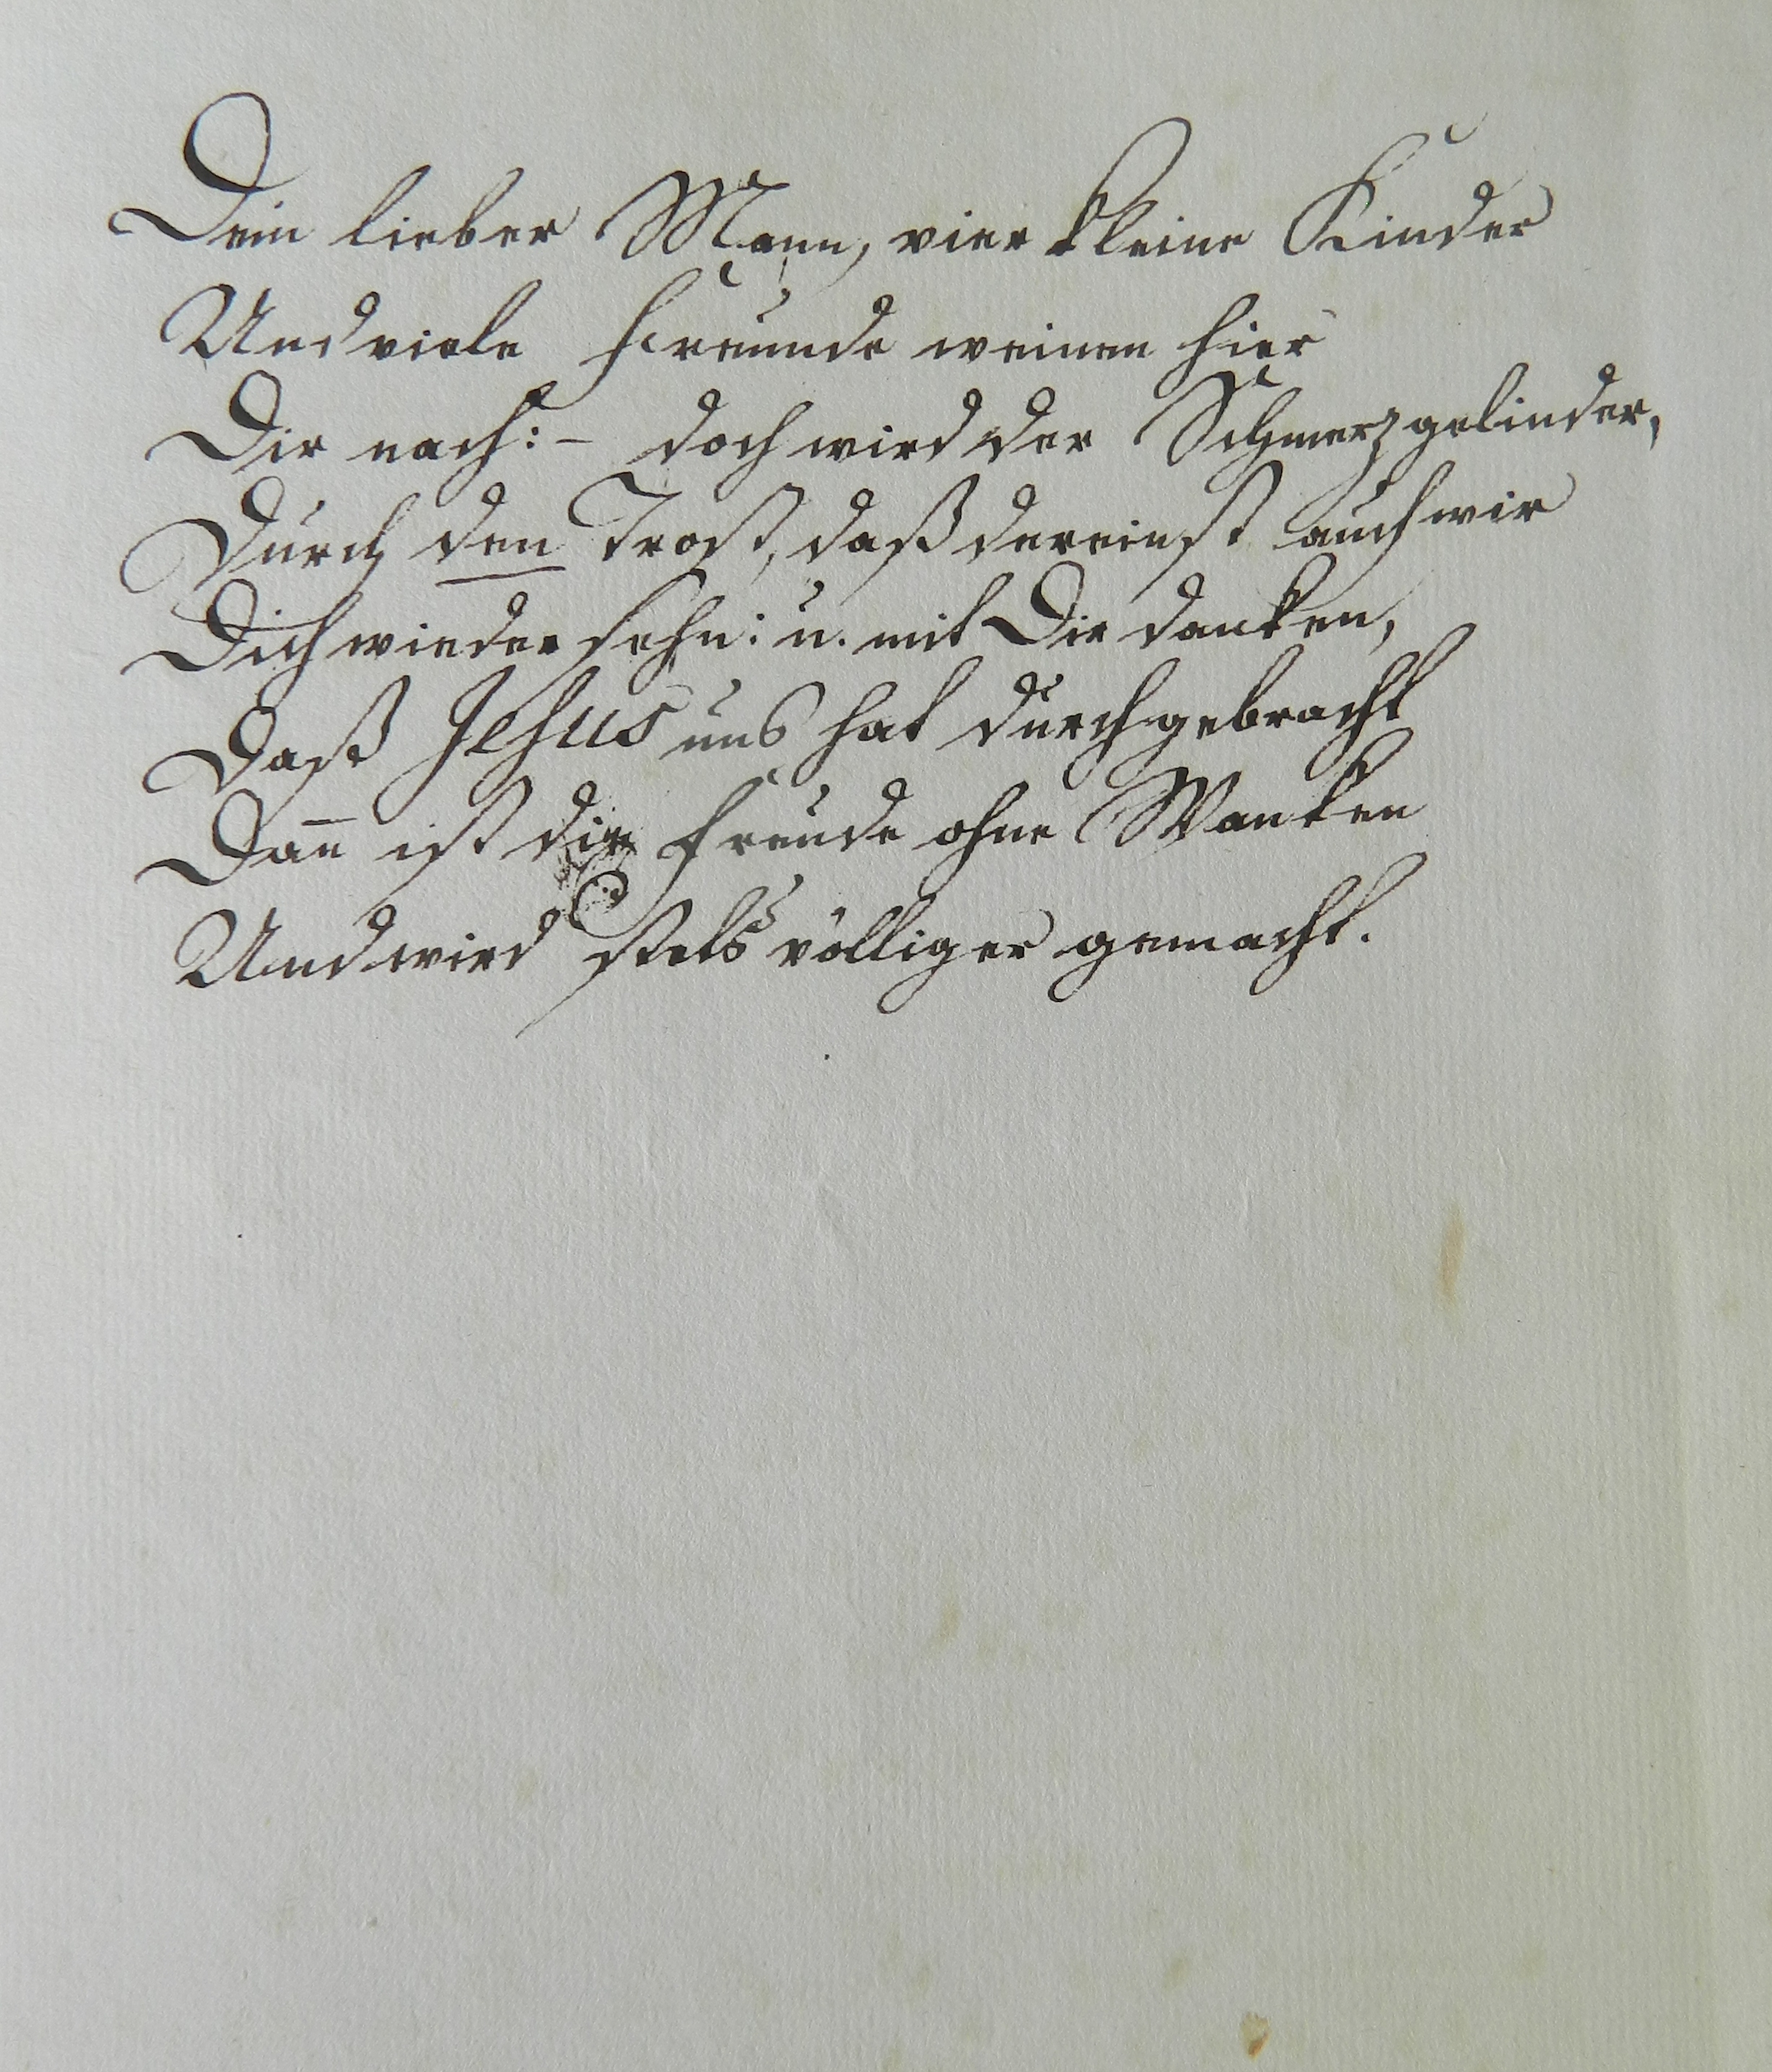 Dein lieber Mann, vier kleine Kinder
Und viele Freunde weinen hier
Dir nach: – doch wird der Schmerz gelinder,
Durch den Trost, daß dereinst auch wir
Dich wieder sehn: u. mit Dir danken,
Daß Jesus uns hat durchgebracht
Dan̄ ist die Freude ohne Wanken
Und wird stets völliger gemacht.